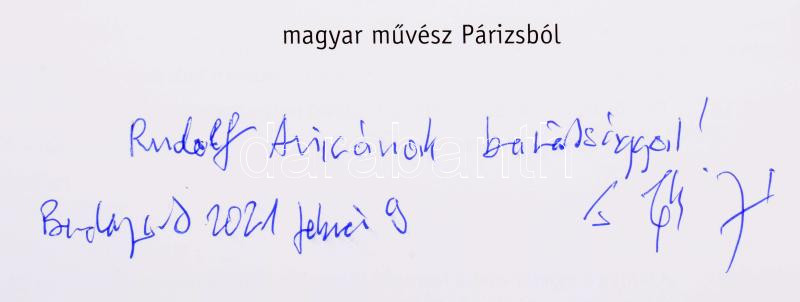 magyar művész Párizsból
Rudolf Anicának barátsággal!
Budapest 2021 február 9
darabanth